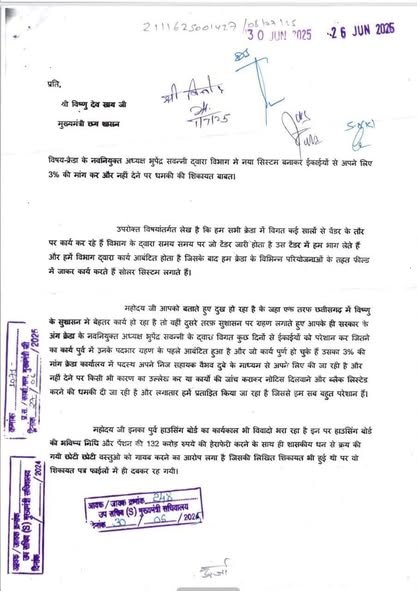 2111625001427/
30 JUN 2025
26 JUN 2025
प्रति,
श्री विष्णु देव साय जी
मुख्यमंत्री छग शासन
1/7/25
विषय-क्रेडा के नवनियुक्त अध्यक्ष भुपेंद्र सवन्नी द्वाराा विभाग में नया सिस्टम बनाकर ईकाईयों से अपने लिए
3% की मांग कर और नहीं देने पर धमकी की शिकायत बाबत।
उपरोक्त विषयांतर्गत लेख है कि हम सभी क्रेडा में विगत कई सालों से वेंडर के तौर
पर कार्य कर रहे हैं विभाग के द्वारा समय समय पर जो टेंडर जारी होता है उस टेंडर में हम भाग लेते हैं
और हमें विभाग द्वारा कार्य आबंटित होता है जिसके बाद हम क्रेडा के विभिन्न परियोजनाओं के तहत फील्ड
में जाकर कार्य करते हैं सोलर सिस्टम लगाते हैं।
महोदय जी आपको बताते हुए दुख हो रहा है के जहा एक तरफ छत्तीसगढ़ में विष्णु
के सुशासन में बेहतर कार्य हो रहा है तो वहीं दुसरे तरफ सुशासन पर ग्रहण लगाते हुए आपके ही सरकार के
अंग क्रेडा के नवनियुक्त अध्यक्ष भुपेंद्र सवन्नी के दवारा विगत कुछ दिनों से ईकाईयों को परेशान कर जितने
का कार्य पुर्व में उनके पदभार ग्रहण के पहले आबंटित हुआ है और जो कार्य पुर्ण हो चुके हैं उसका 3% की
मांग क्रेडा कार्यालय में पदस्थ अपने निज सहायक वैभव दुबे के माध्यम से अपने लिए की जा रही है और
नहीं देने पर किसी भी कारण का उल्लेख कर या कार्यो की जांच कराकर नोटिस दिलवाने और ब्लैक लिस्टेड
करने की धमकी दी जा रही है और लगातार हमें प्रताड़ित किया जा रहा है जिससे हम सब बहुत परेशान हैं।
महोदय जी इनका पुर्व हाउसिंग बोर्ड का कार्यकाल भी विवादो भरा रहा है इन पर हाउसिंग बोर्ड
की भविष्य निधि और पेंशन की 132 करोड़ रुपये की हेराफेरी करने के साथ ही शासकीय धन से क्रय की
गयी छोटी छोटी वस्तुओं को गायब करने का आरोप लगा है जिसकी लिखित शिकायत भी हुई थी पर वो
शिकायत पत्र फाईलों में ही दबकर रह गयी।
आवक / जावक क्रमांक 248
उप सचिव (S) मुख्यमंत्री सचिवालय
दिनांक 30 / 06 / 202
आवक / जावक क्रमांक
उप सचिव (S) मुख्यमंत्री सचिवालय
दिनांक